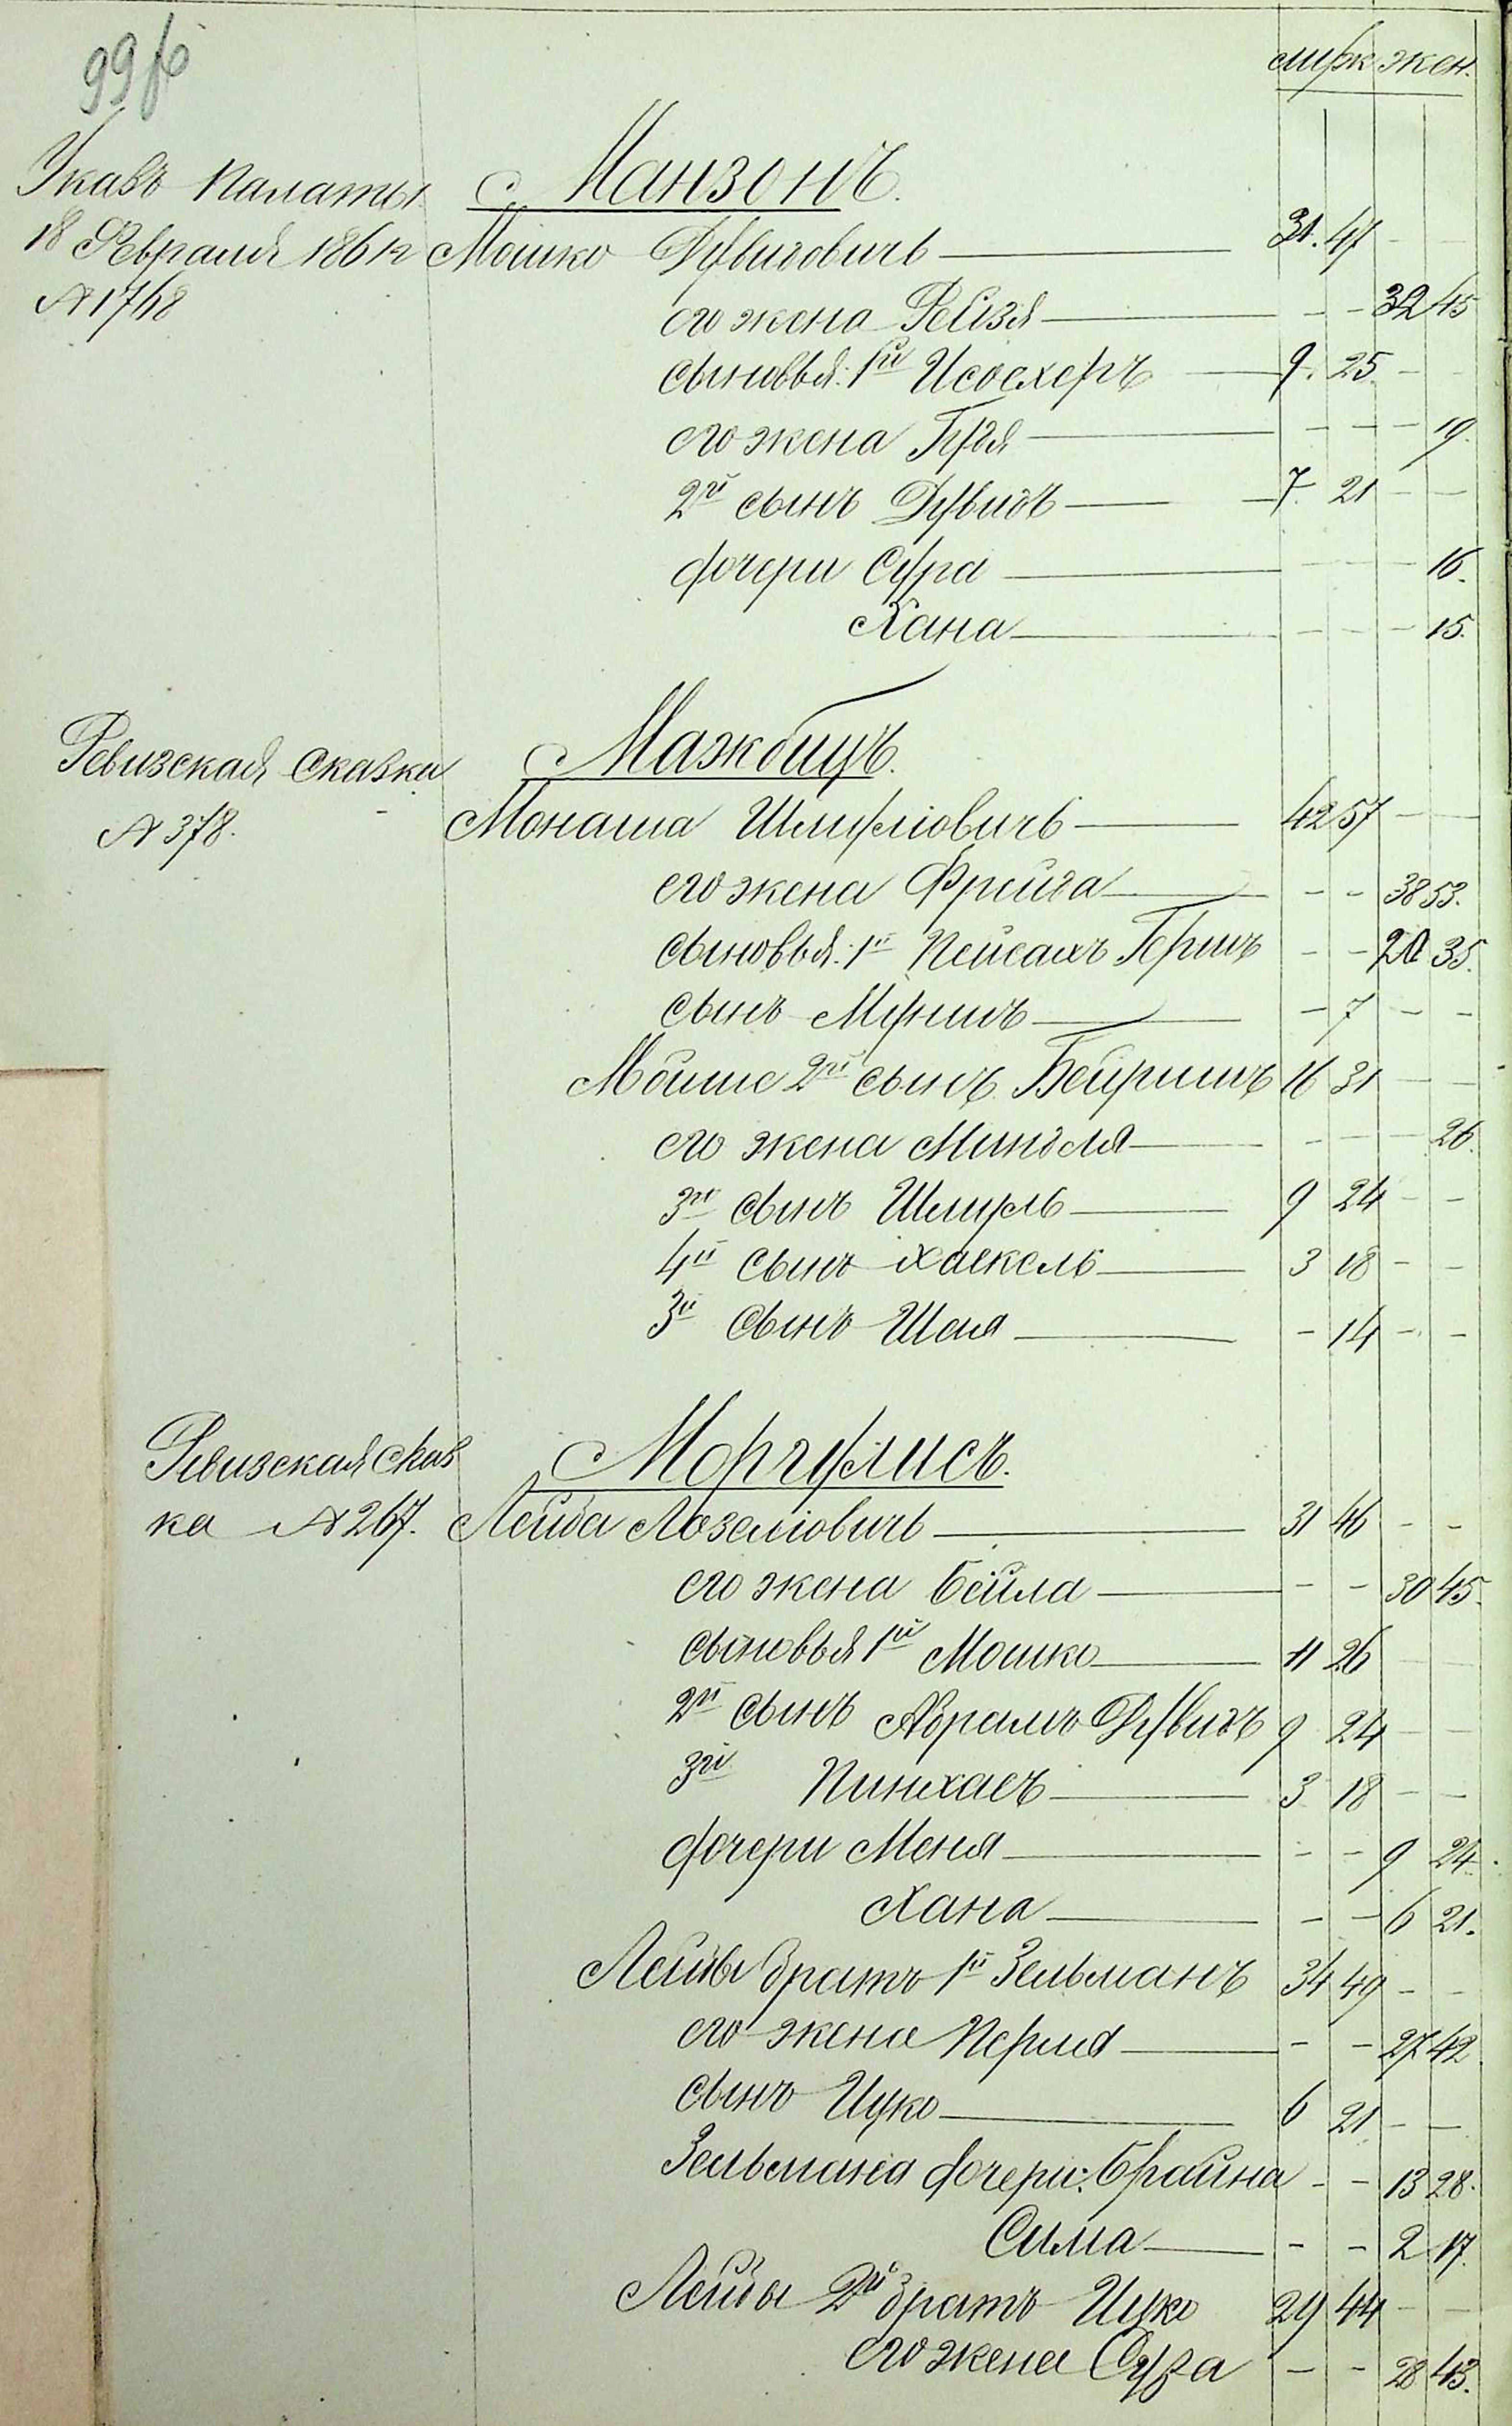 99
мужс жен.
Указъ Палаты Манзонъ.
18 Февраля 186 Мошко Дувидовичъ 31. 47 - -
№ 1768
его жена Рейзя - - 32 45
сыновья: 1й Исосхеръ 9. 25 - -
его жена - - - 19.
2й сынъ Дувидъ 7 21 - -
дочери Сура - - - 16.
Хана - - - 15.
Ревизская сказка Мажбицъ.
№ 378. Монаша Шмулiовичъ 42 57 - -
его жена Фрейда - - 38 53.
сыновья: 1й Пейсахъ Гершъ - - 20 35.
сынъ Мунишъ - 7 - -
2й сынъ Бейришъ 16 31 - -
его жена Миндля - - - 26.
3й сынъ Шмуль 9 24 - -
4й сынъ Хаскель 3 18 - -
3й сынъ Шая - 14 - -
Ревизская сказ Моргулисъ.
ка № 267. Лейба Лозелiовичъ 31 46 - -
его жена Бейла - - 30 45.
сыновья 1й Мошко 11 26 - -
2й сынъ Абрамъ Дувидъ 9 24 - -
3й Пинхасъ 3 18 - -
дочери Меня - - 9 24.
Хана - - 6 21.
Лейбы братъ 1й Зельманъ 34 49 - -
его жена Перля - - 27 42
сынъ Ицко 6 21 - -
Зельмана дочери: Брайна - - 13 28.
Сима - - 2 17.
Лейбы 2й братъ Ицко 29 44 - -
его жена Сура - - 28 43.